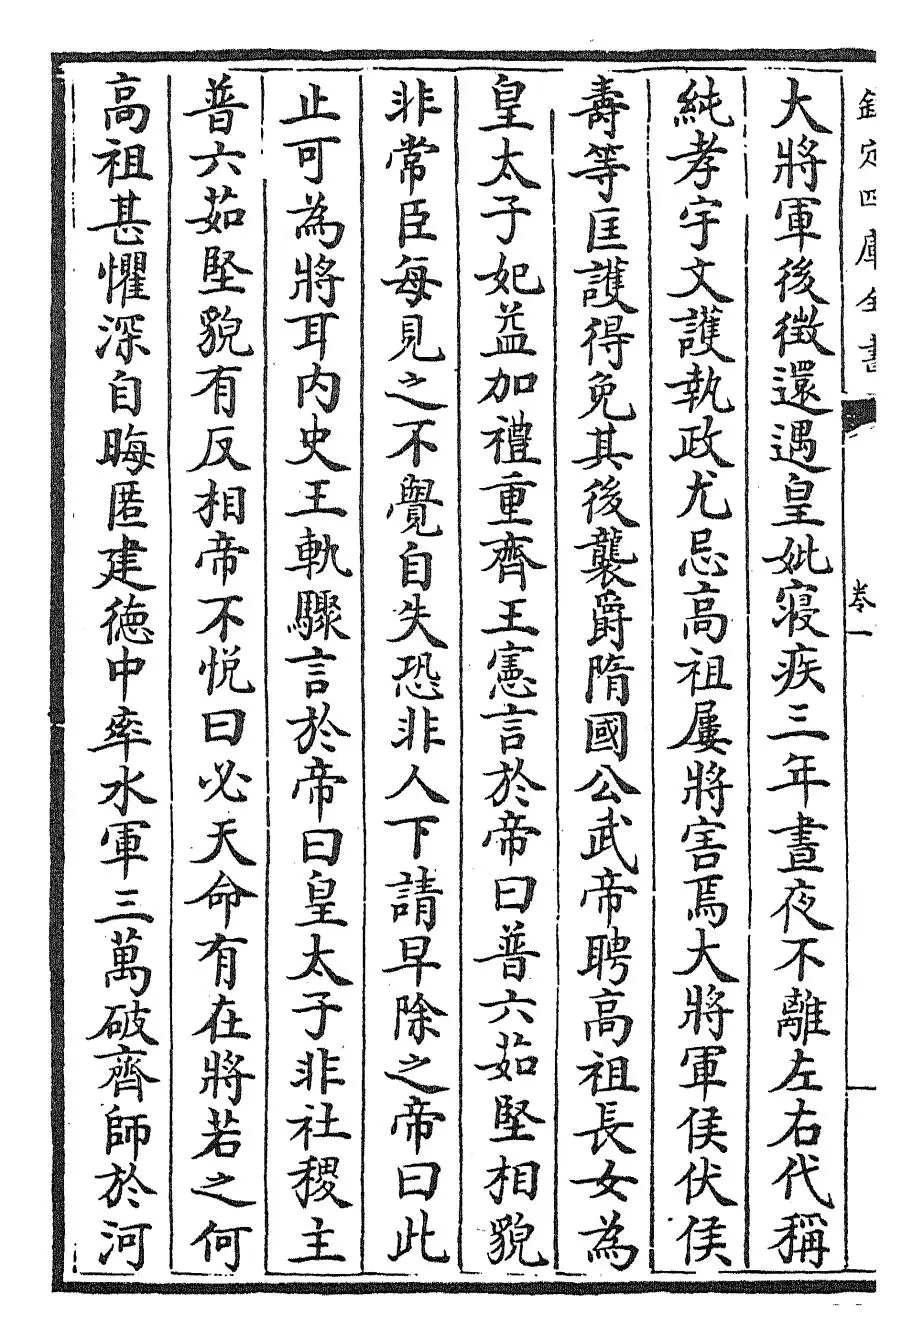 欽定四庫全書
卷一
大將軍後徵還遇皇妣寢疾三年晝夜不離左右代稱
純孝宇文護執政尤忌高祖屢將害焉大將軍侯伏侯
壽等匡護得免其後襲爵隋國公武帝聘高祖長女為
皇太子妃益加禮重齊王憲言於帝曰普六茹堅相貌
非常臣每見之不覺自失恐非人下請早除之帝曰此
止可為將耳內史王軌驟言於帝曰皇太子非社稷主
普六茹堅貌有反相帝不悅曰必天命有在將若之何
高祖甚懼深自晦匿建德中率水軍三萬破齊師於河